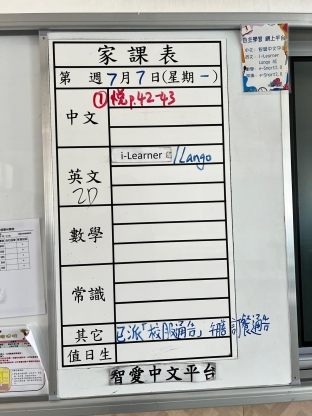 家課表
第 週7月7日(星期一)
中文
①悅p.42-43
i-Learner /Lango
英文
2D
數學
常識
其它
已派「校服通告」午膳訂餐通告
值日生
智愛中文平台
自主學習 網上平台
智愛中文
i-Learner
Lango